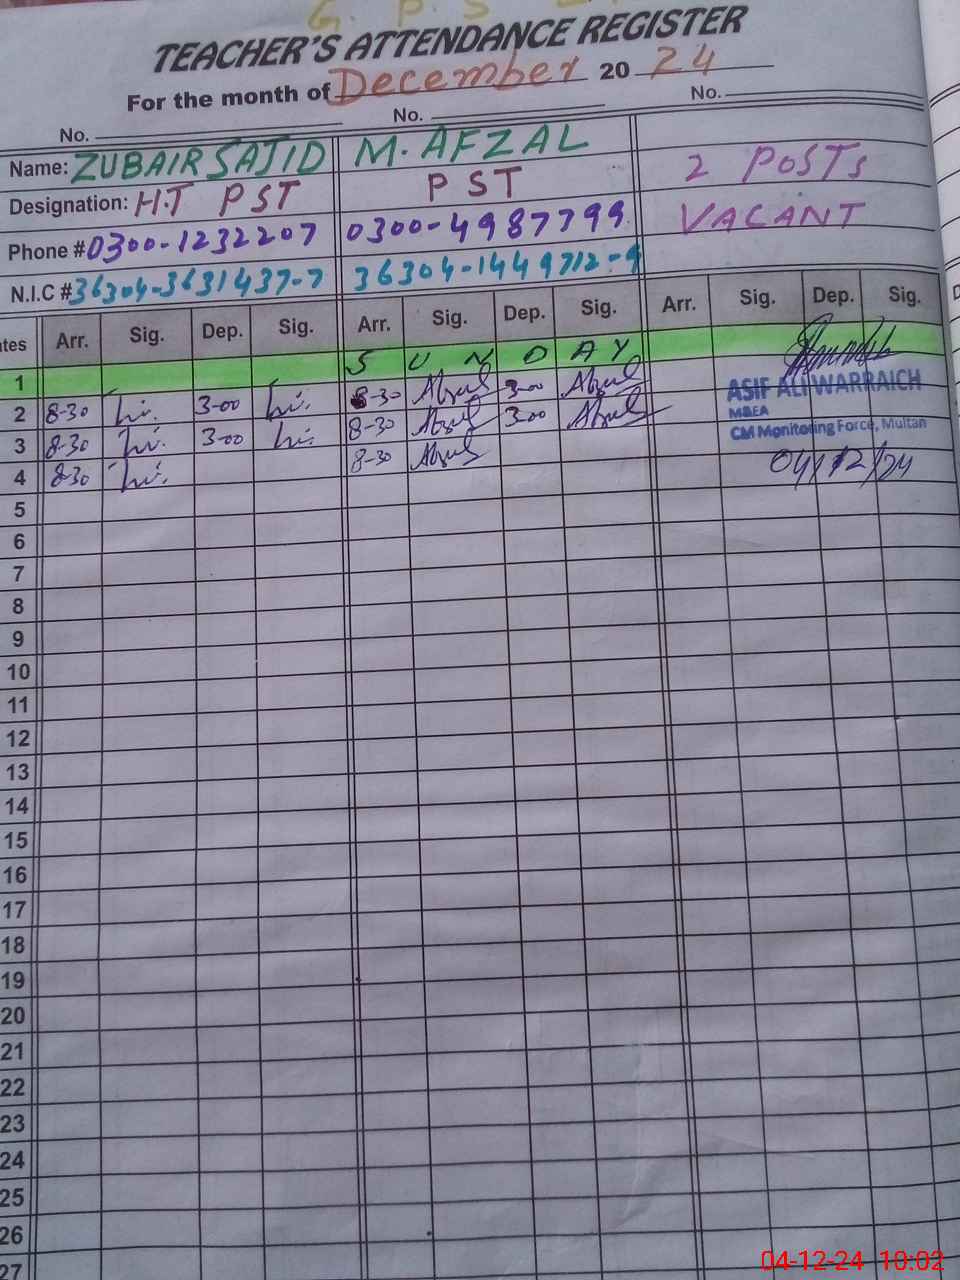 G. P. S
TEACHER'S ATTENDANCE REGISTER
For the month of December 20 24
No. No. No.
Name: ZUBAIR SAJID M. AFZAL 2 POSTS
Designation: H.T PST PST VACANT
Phone # 0300-1232207 0300-4987799
N.I.C # 36304-3631437-7 36304-1449712-9
ates Arr. Sig. Dep. Sig. Arr. Sig. Dep. Sig. Arr. Sig. Dep. Sig.
1 SUNDAY
2 8-30 3-00 8-30 Afzal 3-00 Afzal
3 8-30 3-00 8-30 Afzal 3-00 Afzal
4 8-30 8-30 Afzal
ASIF ALI WARRAICH
MEA
CM Monitoring Force, Multan
04/12/24
5
6
7
8
9
10
11
12
13
14
15
16
17
18
19
20
21
22
23
24
25
26
27
04-12-24 10:02